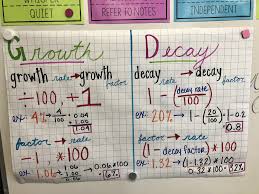 WHISPER
QUIET
REFER TO NOTES
INDEPENDENT
Growth
growth rate → growth factor
÷100 + 1
ex: 4% → 4/100 → 0.04
+1.00
1.04
factor → rate
-1, *100
ex: 1.06
1.06
-1.00
0.06
→ 0.06*100
= 6%
Decay
decay rate → decay factor
1 - (decay rate/100)
ex: 20% → 1 - (20/100)
1 - 0.2
0.8
factor → rate
(1 - decay factor) * 100
ex: 1.32 → (1-1.32) * 100